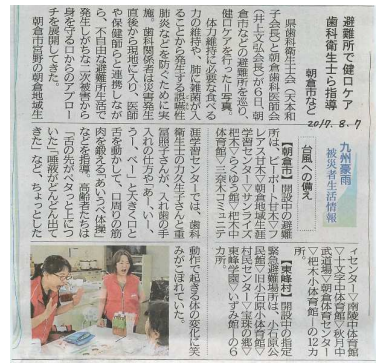 避難所で健口ケア
歯科衛生士ら指導
朝倉市など
2017.8.7
県歯科衛生士会(天本和
子会長)と朝倉歯科医師会
(井上文弘会長)が6日、朝
倉市などの避難所を巡り、
健口ケアを行った=写真。
体力維持に必要な食べる
力の維持や、肺に雑菌が入
ることから発生する誤嚥性
肺炎などを防ぐために実
施。歯科関係者は災害発生
直後から現地に入り、医師
や保健師らと連携しなが
ら、不自由な避難所生活で
発生しがちな二次被害から
身を守る口からのアプロー
チを展開してきた。
朝倉市宮野の朝倉地域生
涯学習センターでは、歯科
衛生士の力久生子さんと重
冨照子さんが、入れ歯の手
入れの仕方や「あ、いー、
うー、べー」と大きく口と
舌を動かして、口周りの筋
肉を鍛える「あいうべ体操」
などを指導。高齢者たちは
「舌の先がペタっと上につ
いた」「唾液がどんどん出て
きた」など、ちょっとした
動作で起きる体の変化に笑
みがこぼれていた。
九州豪雨
被災者生活情報
台風への備え
【朝倉市】開設中の避難
所は、ピーポート甘木▽フ
レアス甘木▽朝倉地域生涯
学習センター▽サンライズ
杷木▽らくゆう館▽杷木中
体育館▽三奈木コミュニテ
ィセンター▽南陵中体育館
▽十文字中体育館▽秋月中
武道場▽朝倉体育センター
▽杷木小体育館―の12カ所。
【東峰村】開設中の指定
緊急避難場所は、小石原公
民館▽旧小石原小体育館▽
村民センター▽宝珠の郷▽
東峰学園▽いずみ館―の6
カ所。